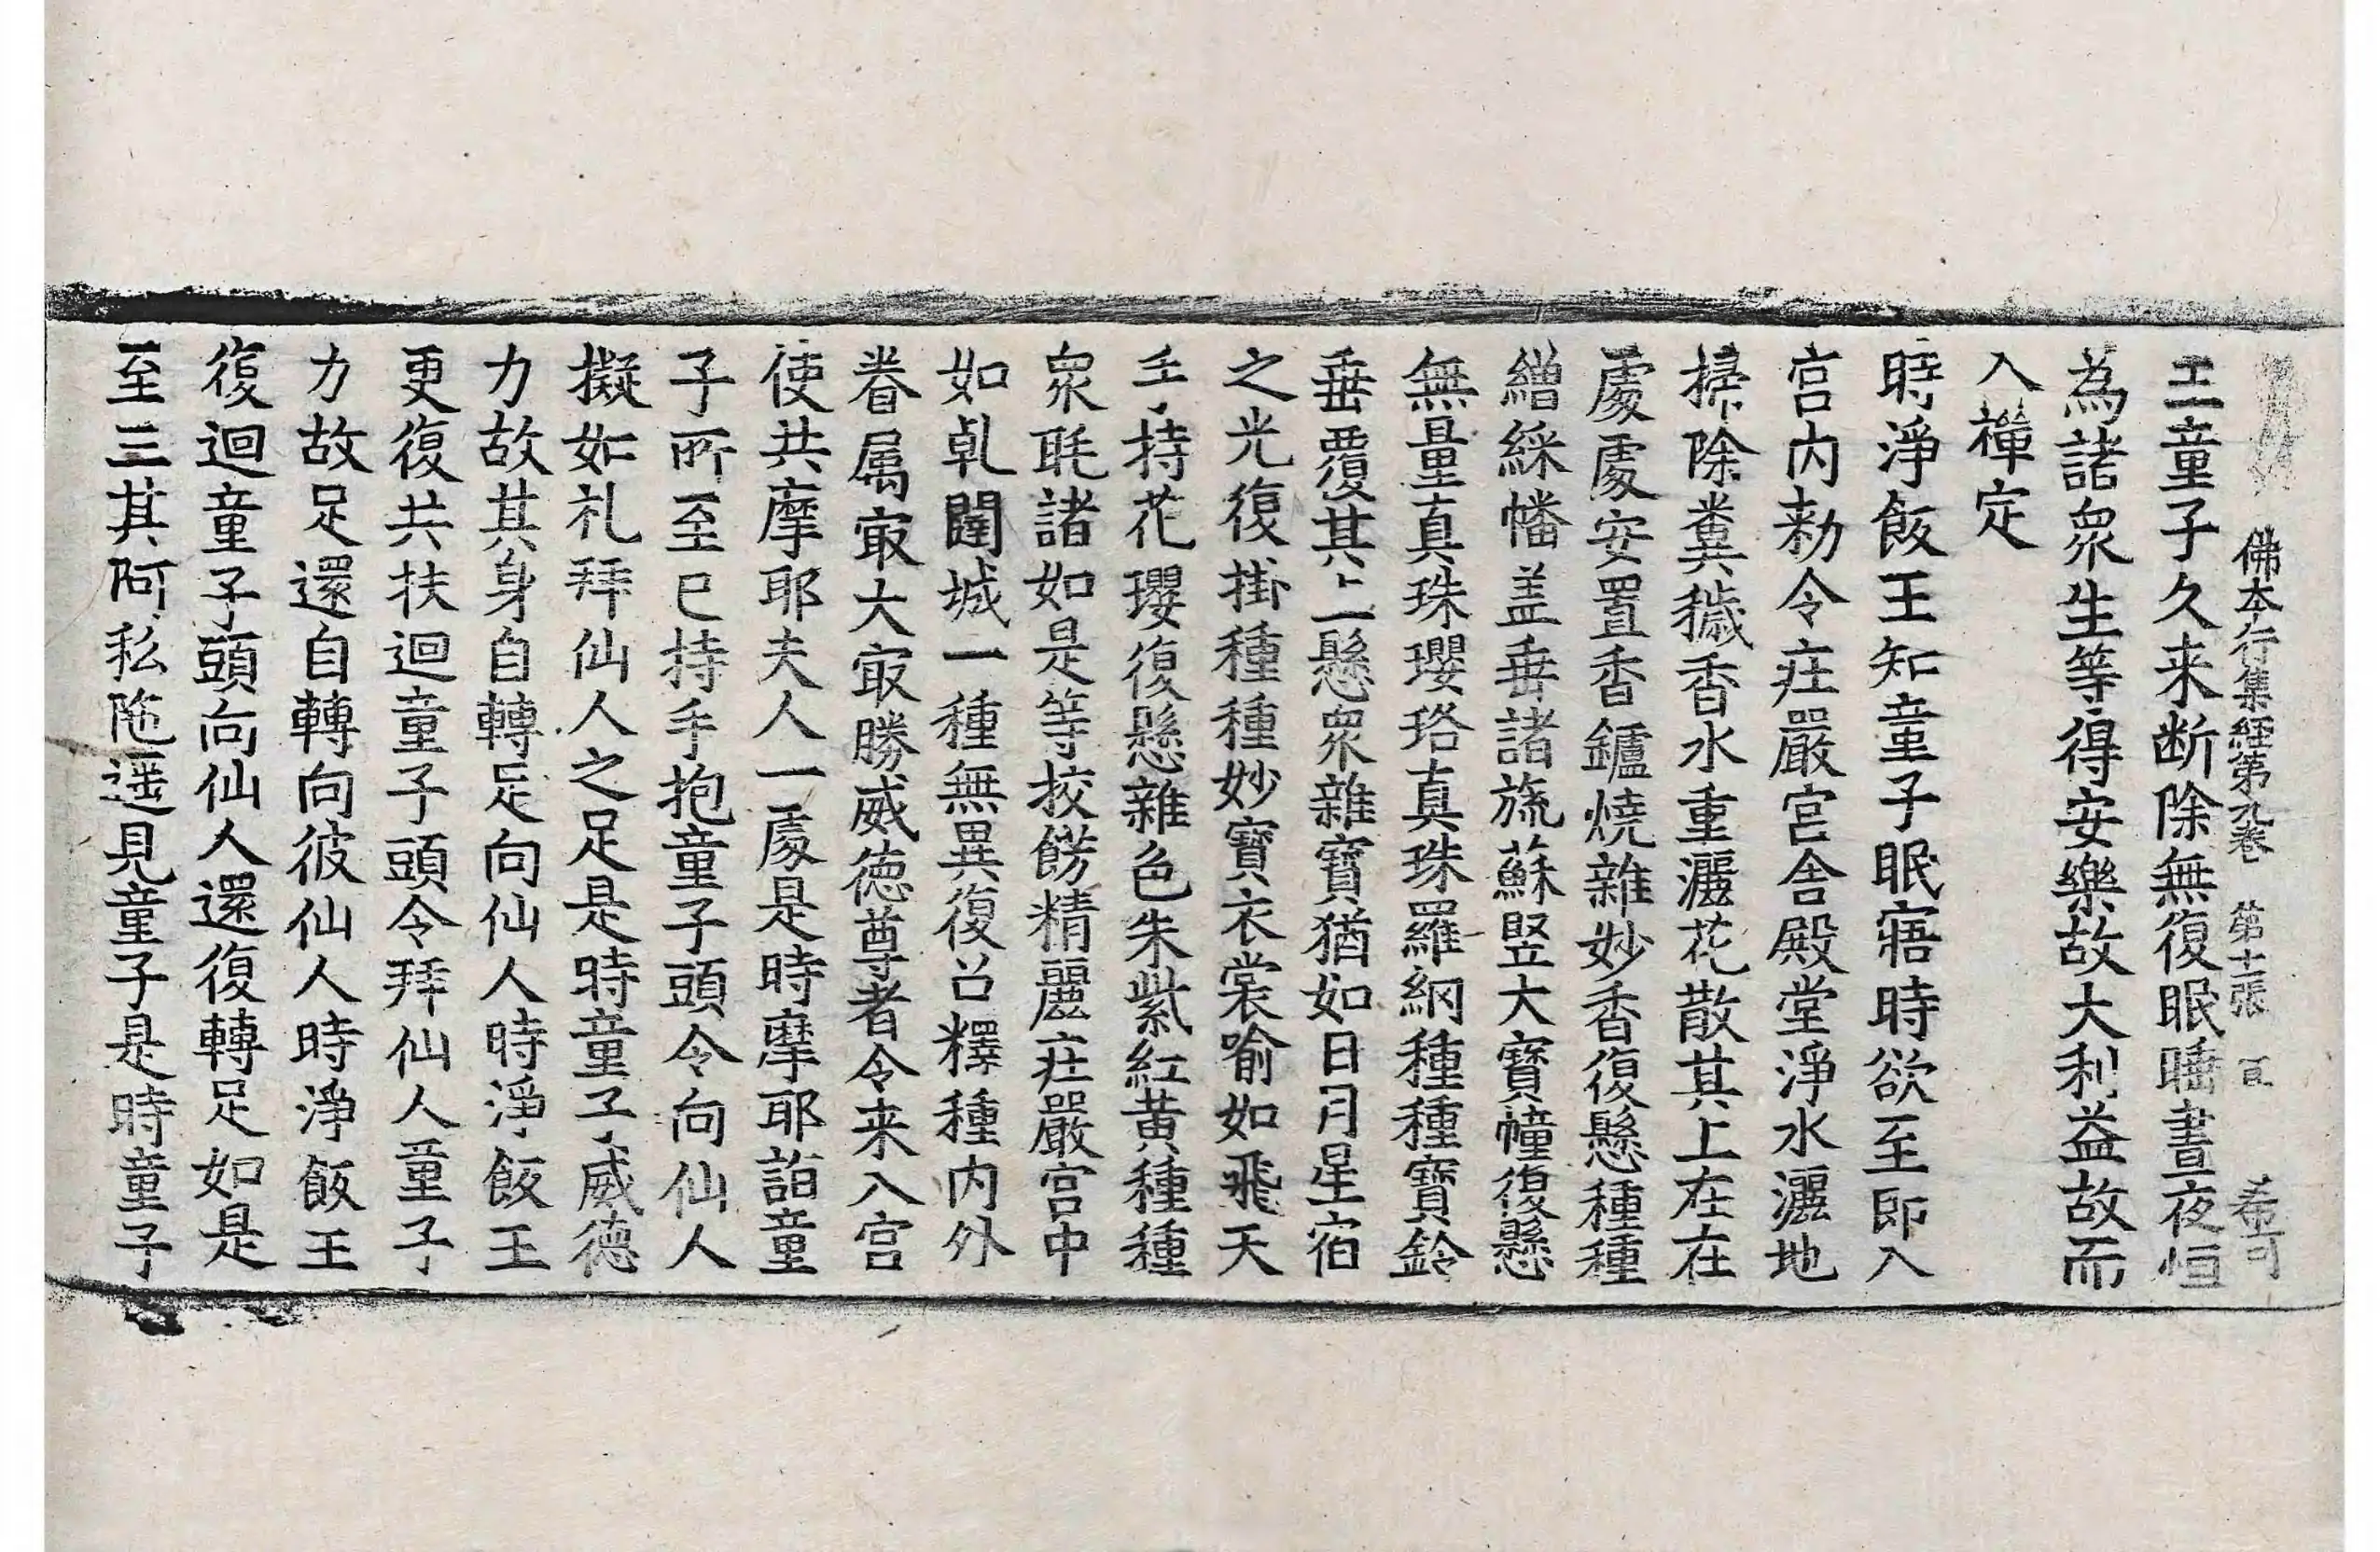 佛本行集經第九卷 第十二張 百 希可
王童子久来断除無復眠睡晝夜恒
為諸衆生等得安樂故大利益故而
入禪定
時淨飯王知童子眠寤時欲至即入
宫内勑令庄嚴宫舍殿堂淨水灑地
掃除糞穢香水重灑花散其上在在
處處安置香鑪燒雜妙香復懸種種
繒綵幡盖垂諸旒蘇竪大寶幢復懸
無量真珠瓔珞真珠羅網種種寶鈴
垂覆其上懸衆雜寶猶如日月星宿
之光復掛種種妙寶衣裳喻如飛天
手持花瓔復懸雜色朱紫紅黄種種
衆毦諸如是等挍餝精麗庄嚴宫中
如乹闥城一種無異復召釋種内外
眷属㝡大㝡勝威德尊者令来入宫
使共摩耶夫人一處是時摩耶詣童
子所至已持手抱童子頭令向仙人
擬如礼拜仙人之足是時童子威德
力故其身自轉足向仙人時淨飯王
更復共扶迴童子頭令拜仙人童子
力故足還自轉向彼仙人時淨飯王
復迴童子頭向仙人還復轉足如是
至三其阿私陁遥見童子是時童子